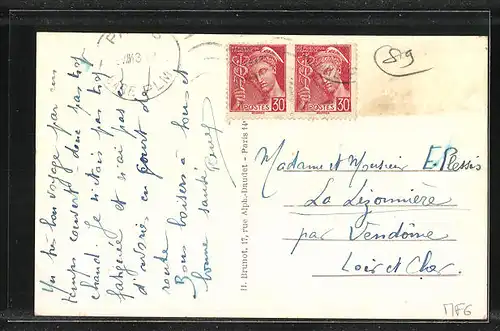 Un très bon voyage par un
temps couvert donc pas trop
chaud. je n'étais pas trop
fatiguée et n'ai pas eu
d'ennuis en cours de
route.
Bons baisers à tous et
bonne santé
H. Brunot, 17, rue Alph.-Daudet - Paris 14e
POSTES 30
POSTES 30
89
Madame et Monsieur E. Plessis
La Lézonnière
par Vendôme
Loir et Cher